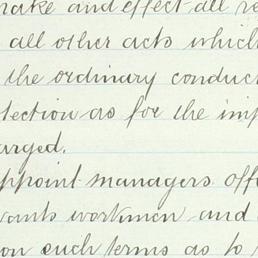 make and effect all re
all other acts which
the ordinary conduct
tection as for the imp
arged.
appoint managers offi
vants workmen and
on such terms as to